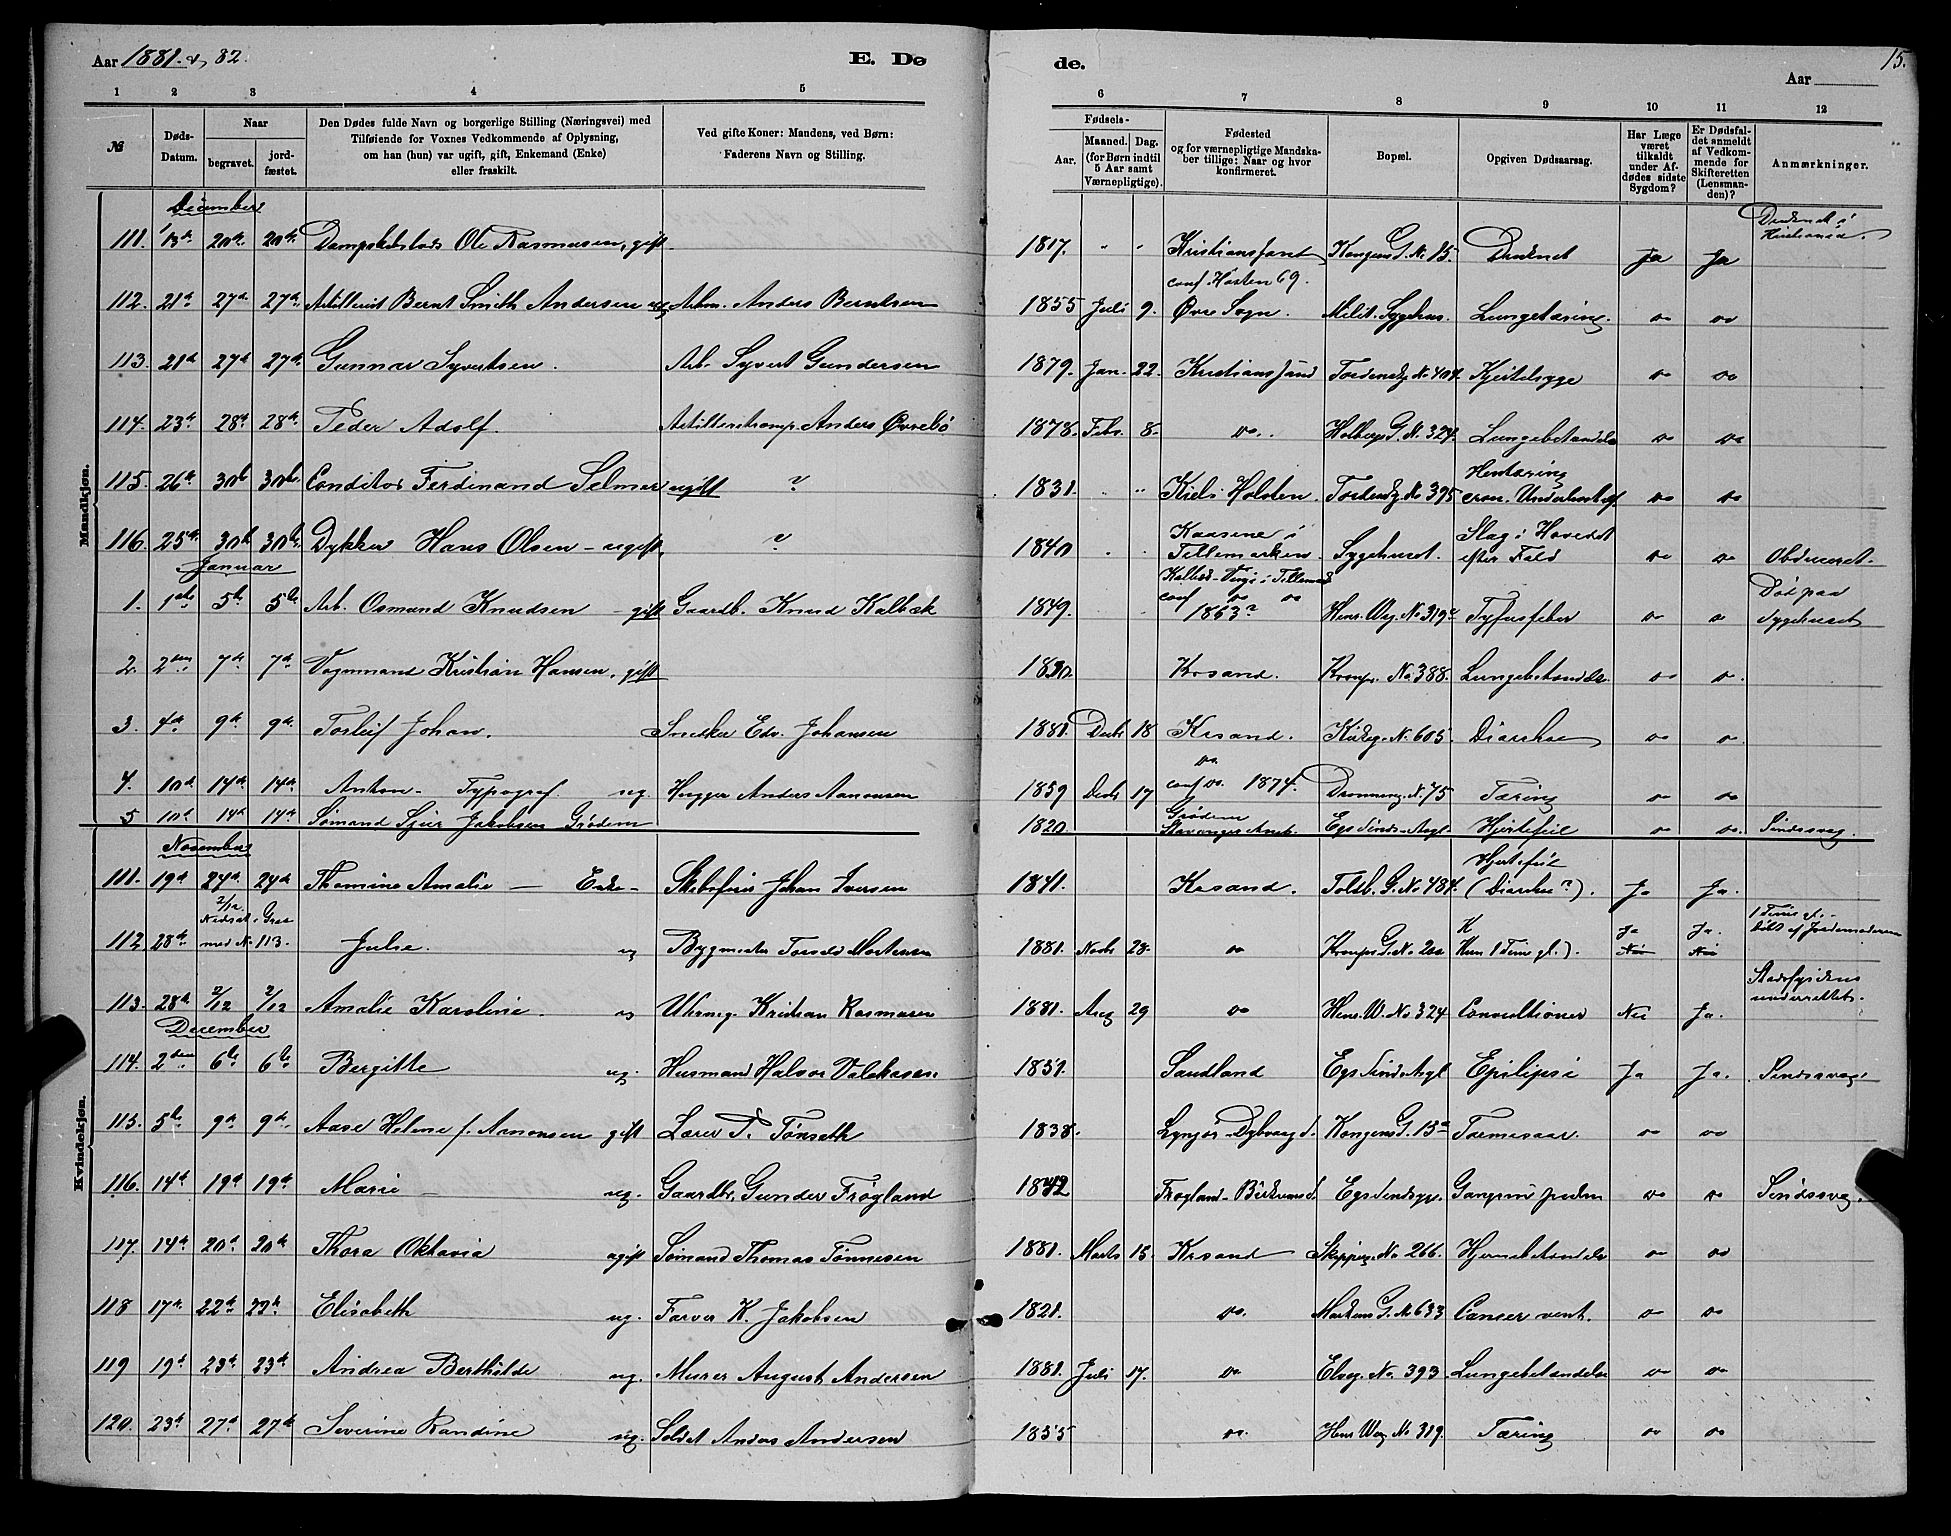 Aar 1881 & 82.
E. Dø
de.
Aar
15.
1 2 3 4 5
6 7 8 9 10 11 12
№ Døds-Datum. Naar begravet. jordfæstet. Den Dødes fulde Navn og borgerlige Stilling (Næringsvei) med Tilføiende for Voxnes Vedkommende af Oplysning, om han (hun) var ugift, gift, Enkemand (Enke) eller fraskilt. Ved gifte Koner: Mandens, ved Børn: Faderens Navn og Stilling.
Fødsels- Aar. Maaned. Dag. (for Børn indtil 5 Aar samt Værnepligtige). Fødested og for værnepligtige Mandskaber tillige: Naar og hvor konfirmeret. Bopæl. Opgiven Dødsaarsag. Har Læge været tilkaldt under Afdødes sidste Sygdom? Er Dødsfaldet anmeldt af Vedkommende for Skifteretten (Lensmanden)? Anmærkninger.
Mandkjøn.
December
111. 13de 20de 20de Ole Rasmussen, gift 1817. " " Kristianssand Kongens G. No 15. Druknet Ja Ja Druknet i
112. 21de 27de 27de Artillerist Bernt Smith Andersen ug Arbm. Anders Berntsen 1855 Juli 9. conf. Høsten 69. Øvre Sogn. Milit. Sygehus. Lungetæring. do do
113. 21de 27de 27de Gunnar Syvertsen. Arb. Syvert Gundersen 1879. Jan. 22. Kristianssand Tordenskg. No 404. Kjertelsyge do do
114. 23de 28de 28de Peder Adolf. Anders Øvrebø 1878. Febr. 8. do. Holbergs G. No. 324. Lungebetændelse do do
115. 26de 30te 30te Conditor Ferdinand Selmar ugift ? 1831. " " Kiel i Holsten. Tordenskg No 395 do do
116. 25de 30te 30te Dykker Hans Olsen - ugift ? 1840 " " Kaasene i Tellemarken. Sygehuset. Slag i Hovedet efter Fald do do Obduceret.
Januar
1. 1ste 5te 5te Arb. Osmund Knudsen - gift Gaardb. Knud Kalbæk 1849. conf do do 1863? Henr. Weg. No 319 Tyfusfeber do do Død paa Sygehuset
2. 2den 7de 7de Vognmand Kristian Hansen, gift Krsand. Krongs. No. 388. Lungebetændelse do do
3. 4de 9de 9de Torleif Johan. Snedker Edv. Johansen 1881. Decbr 18 Krsand. Kirkeg. No. 605. Diarrhoe do do
4. 10de 14de 14de Anton - Typograf. ug. Hugger Anders Aanonsen 1859 Decbr 17 do conf do. 1874. Dronning. No. 75 Tæring do do
5 10de 14de 14de Sømand Sjur Jakobsen Grødem 1820 Grødem Stavanger Amt. Hjertefeil do do. Sindssvag.
Kvindekjøn.
November
111. 19de 24de 24de Thomine Amalie - Enke - Johan Iversen 1841. Krsand. Toldb. G. No 484. Hjertefeil (Diarrhoe?). Ja Ja.
112 28de 2/12 Nedsat i Grav med No. 113. Julie. ug Bygmester Mortensen 1881. Novbr 28. do Krongs G. No. (Kun 1 Time gl.). Ja Nei Ja. Nei 1 Time gl. døbt af Jordemoderen
113. 28de 2/12 2/12 Amalie Karoline. ug Uhrmg. Kristian Rasmussen 1881. Aug 29 do Henr. W. No 324 Convultioner Nei Ja. Stadsfysikus underrettet.
December
114. 2den 6te 6te Bergitte ug. Husmand Halvor 1851. Epilipsi Ja Ja. Sindssvag.
115. 5te 9de 9de Aase Helene f. Aanonsen gift Lærer P. Tønseth 1838. Lyngør - Dybvaag Kongens G. 13a Tarmesaar. do do
116. 14de 19de 19de Marie - ug. Gaardbr. Gunder Frøgland 1842 Frøgland - do do Sindssvag.
117. 14de 20de 20de Thora Oktavia ugift Sømand Thomas Tønnesen 1881. Marts 15. Krsand Skipperg. No 266. Hjernebetændelse do do
118 17de 22de 22de Elisabeth ug. Farver K. Jakobsen 1821. do. Markens G. No 633 Cancer vent. do do
119 19de 23de 23de Andrea Berthilde ug. Murer August Andersen 1881. Juli 17. do Elveg. No. 393 Lungebetændelse do do
120. 23de 27de 27de Severine Randine ug. Soldat Anders Andersen 1855 do. Henr Weg No 319. Tæring do do